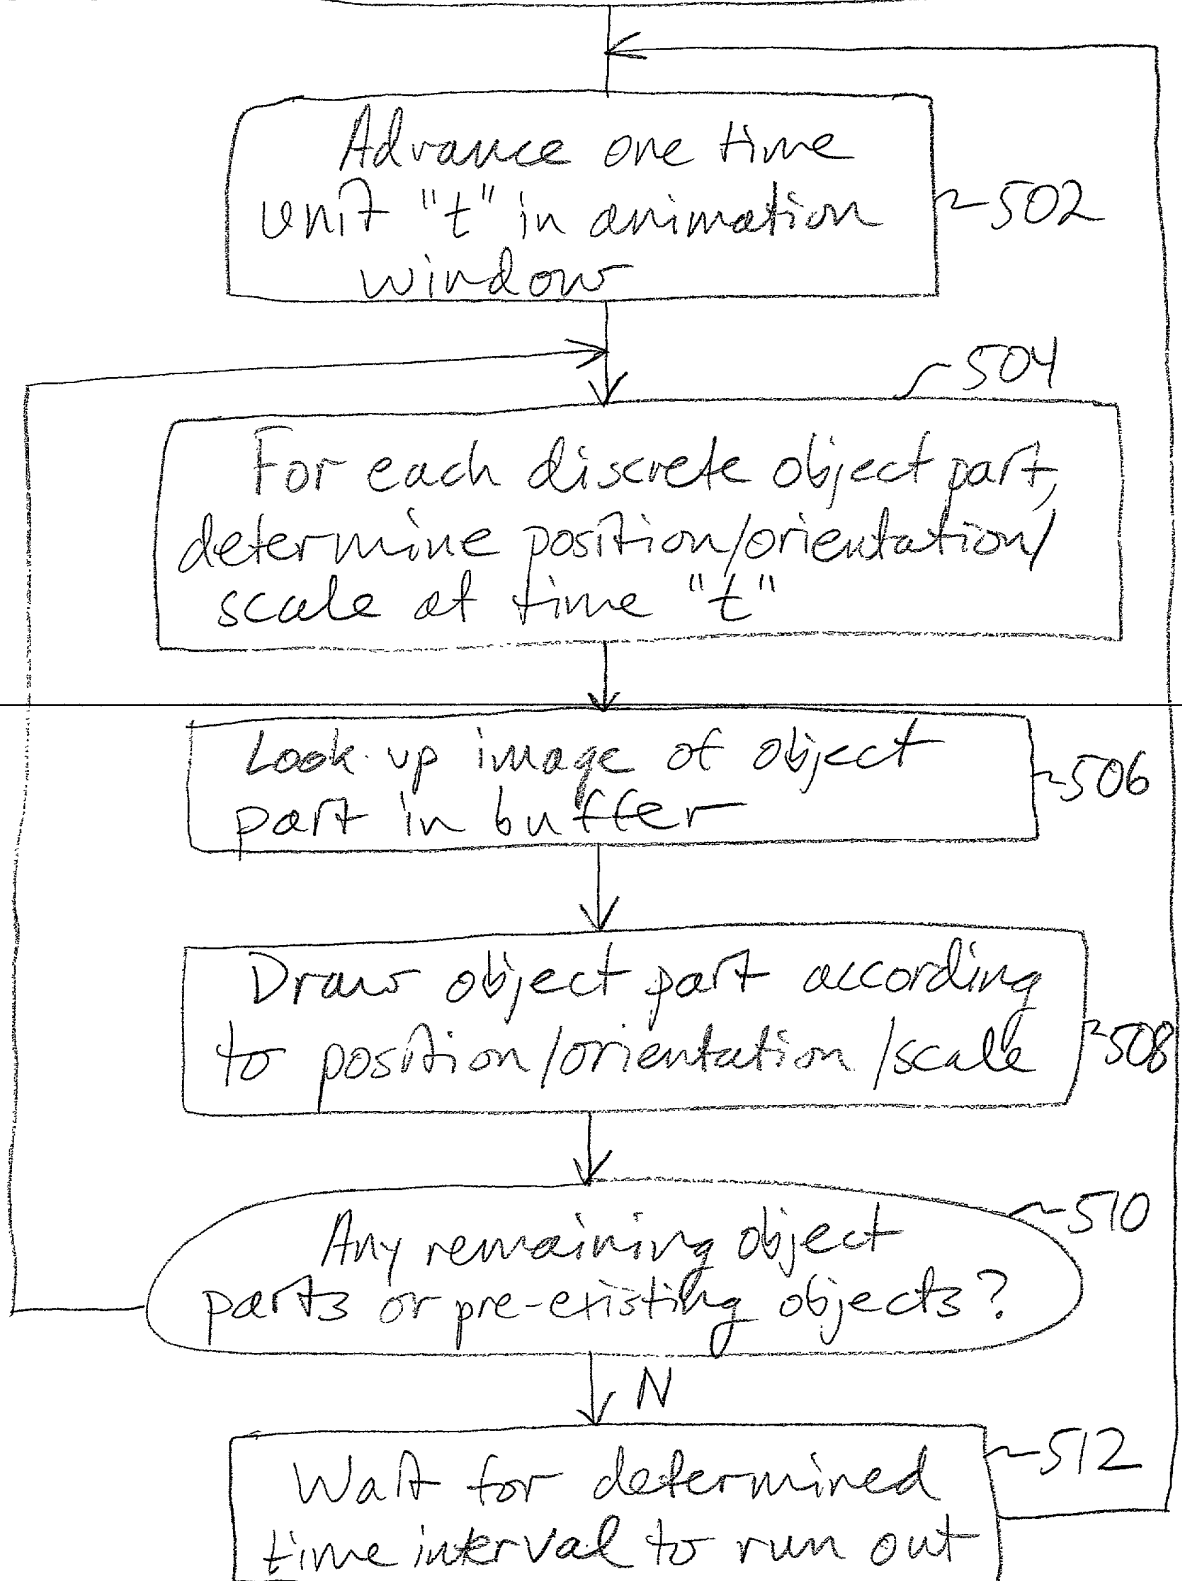 Advance one time
unit "t" in animation
window
502
504
For each discrete object part,
determine position/orientation/
scale at time "t"
Look-up image of object
part in buffer
506
Draw object part according
to position/orientation/scale
508
510
Any remaining object
parts or pre-existing objects?
N
512
Wait for determined
time interval to run out